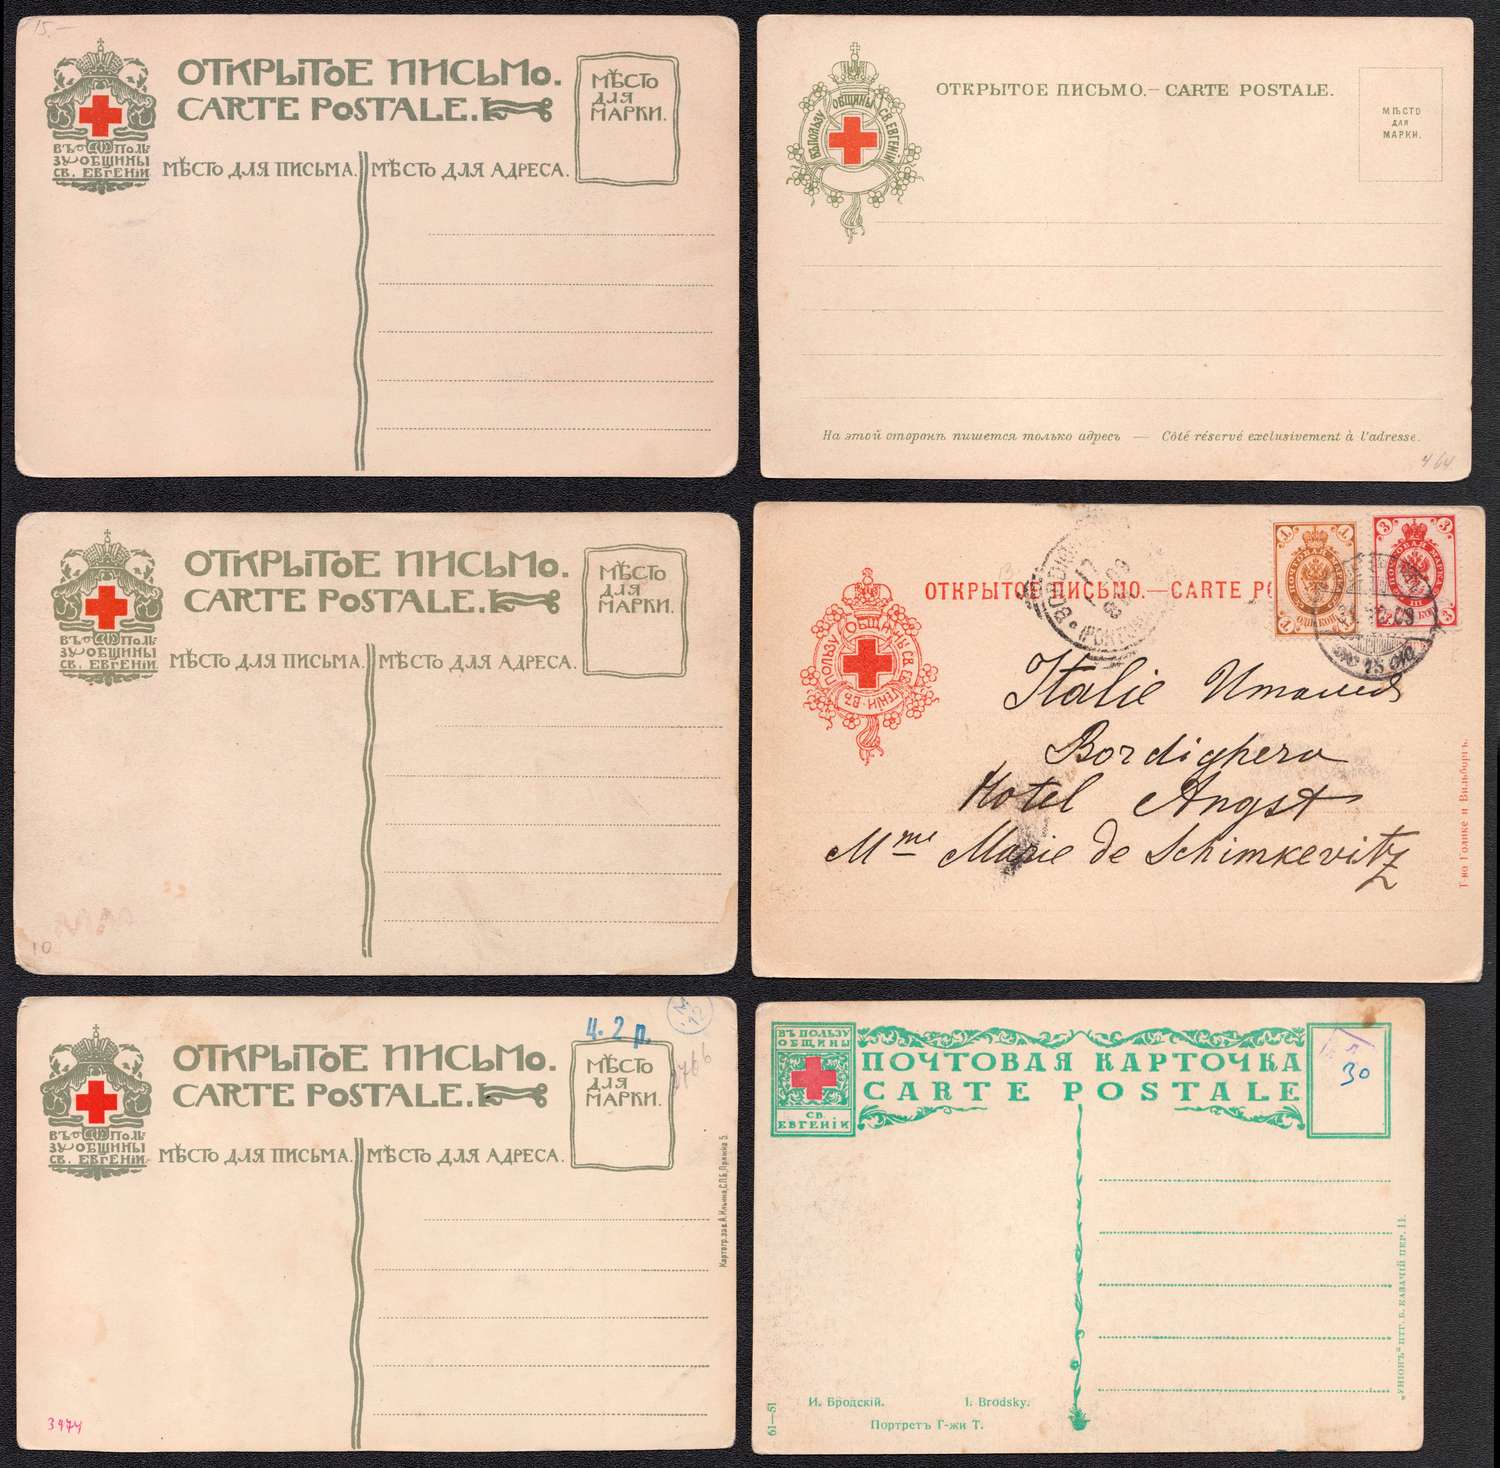 15.—
ОТКРЫТОЕ ПИСЬМО.
CARTE POSTALE.
МѢСТО
ДЛЯ
МАРКИ.
ВЪ ПОЛЬ
ЗУ ОБЩИНЫ
СВ. ЕВГЕНІИ
МѢСТО ДЛЯ ПИСЬМА.
МѢСТО ДЛЯ АДРЕСА.
ОТКРЫТОЕ ПИСЬМО.— CARTE POSTALE.
МѢСТО
ДЛЯ
МАРКИ.
ВЪ ПОЛЬЗУ ОБЩИНЫ СВ. ЕВГЕНІИ
На этой сторонѣ пишется только адресъ — Côté réservé exclusivement à l'adresse.
464
ОТКРЫТОЕ ПИСЬМО.
CARTE POSTALE.
МѢСТО
ДЛЯ
МАРКИ.
ВЪ ПОЛЬ
ЗУ ОБЩИНЫ
СВ. ЕВГЕНІИ
МѢСТО ДЛЯ ПИСЬМА.
МѢСТО ДЛЯ АДРЕСА.
10
ОТКРЫТОЕ ПИСЬМО.—CARTE
ВЪ ПОЛЬЗУ ОБЩИНЫ СВ. ЕВГЕНІИ
ПОЧТОВАЯ МАРКА
Italie Италія
Bordighera
Hotel Angst
Mme Marie de Schimkevitz
Т-во Голике и Вильборгъ.
ОТКРЫТОЕ ПИСЬМО.
CARTE POSTALE.
ц. 2 р.
МѢСТО
ДЛЯ
МАРКИ.
ВЪ ПОЛЬ
ЗУ ОБЩИНЫ
СВ. ЕВГЕНІИ
МѢСТО ДЛЯ ПИСЬМА.
МѢСТО ДЛЯ АДРЕСА.
Картогр. зав. А. Ильина, С.П.Б. Пряжка 5.
3974
ВЪ ПОЛЬЗУ
ОБЩИНЫ
СВ.
ЕВГЕНІИ
ПОЧТОВАЯ КАРТОЧКА
CARTE POSTALE
30
И. Бродскій. I. Brodsky.
Портретъ Г-жи Т.
61—51
„УНІОНЪ" ПТГ. Б. КАЗАЧІЙ ПЕР. 11.